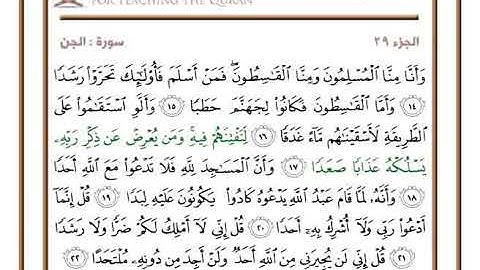 FOR TEACHING THE QURAN
الجزء ٢٩
سورة : الجن
وَأَنَّا مِنَّا ٱلْمُسْلِمُونَ وَمِنَّا ٱلْقَٰسِطُونَ ۖ فَمَنْ أَسْلَمَ فَأُو۟لَٰٓئِكَ تَحَرَّوْا۟ رَشَدًا
١٤ وَأَمَّا ٱلْقَٰسِطُونَ فَكَانُوا۟ لِجَهَنَّمَ حَطَبًا ١٥ وَأَلَّوِ ٱسْتَقَٰمُوا۟ عَلَى
ٱلطَّرِيقَةِ لَأَسْقَيْنَٰهُم مَّآءً غَدَقًا ١٦ لِّنَفْتِنَهُمْ فِيهِ ۚ وَمَن يُعْرِضْ عَن ذِكْرِ رَبِّهِۦ
يَسْلُكْهُ عَذَابًا صَعَدًا ١٧ وَأَنَّ ٱلْمَسَٰجِدَ لِلَّهِ فَلَا تَدْعُوا۟ مَعَ ٱللَّهِ أَحَدًا
١٨ وَأَنَّهُۥ لَمَّا قَامَ عَبْدُ ٱللَّهِ يَدْعُوهُ كَادُوا۟ يَكُونُونَ عَلَيْهِ لِبَدًا ١٩ قُلْ إِنَّمَآ
أَدْعُوا۟ رَبِّى وَلَآ أُشْرِكُ بِهِۦٓ أَحَدًا ٢٠ قُلْ إِنِّى لَآ أَمْلِكُ لَكُمْ ضَرًّا وَلَا رَشَدًا
٢١ قُلْ إِنِّى لَن يُجِيرَنِى مِنَ ٱللَّهِ أَحَدٌ وَلَنْ أَجِدَ مِن دُونِهِۦ مُلْتَحَدًا ٢٢